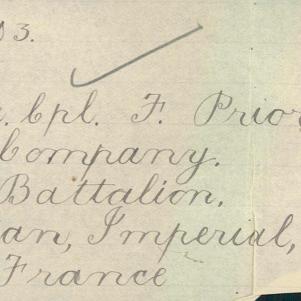 03.
. Cpl. F. Prior
Company.
Battalion.
an, Imperial,
France